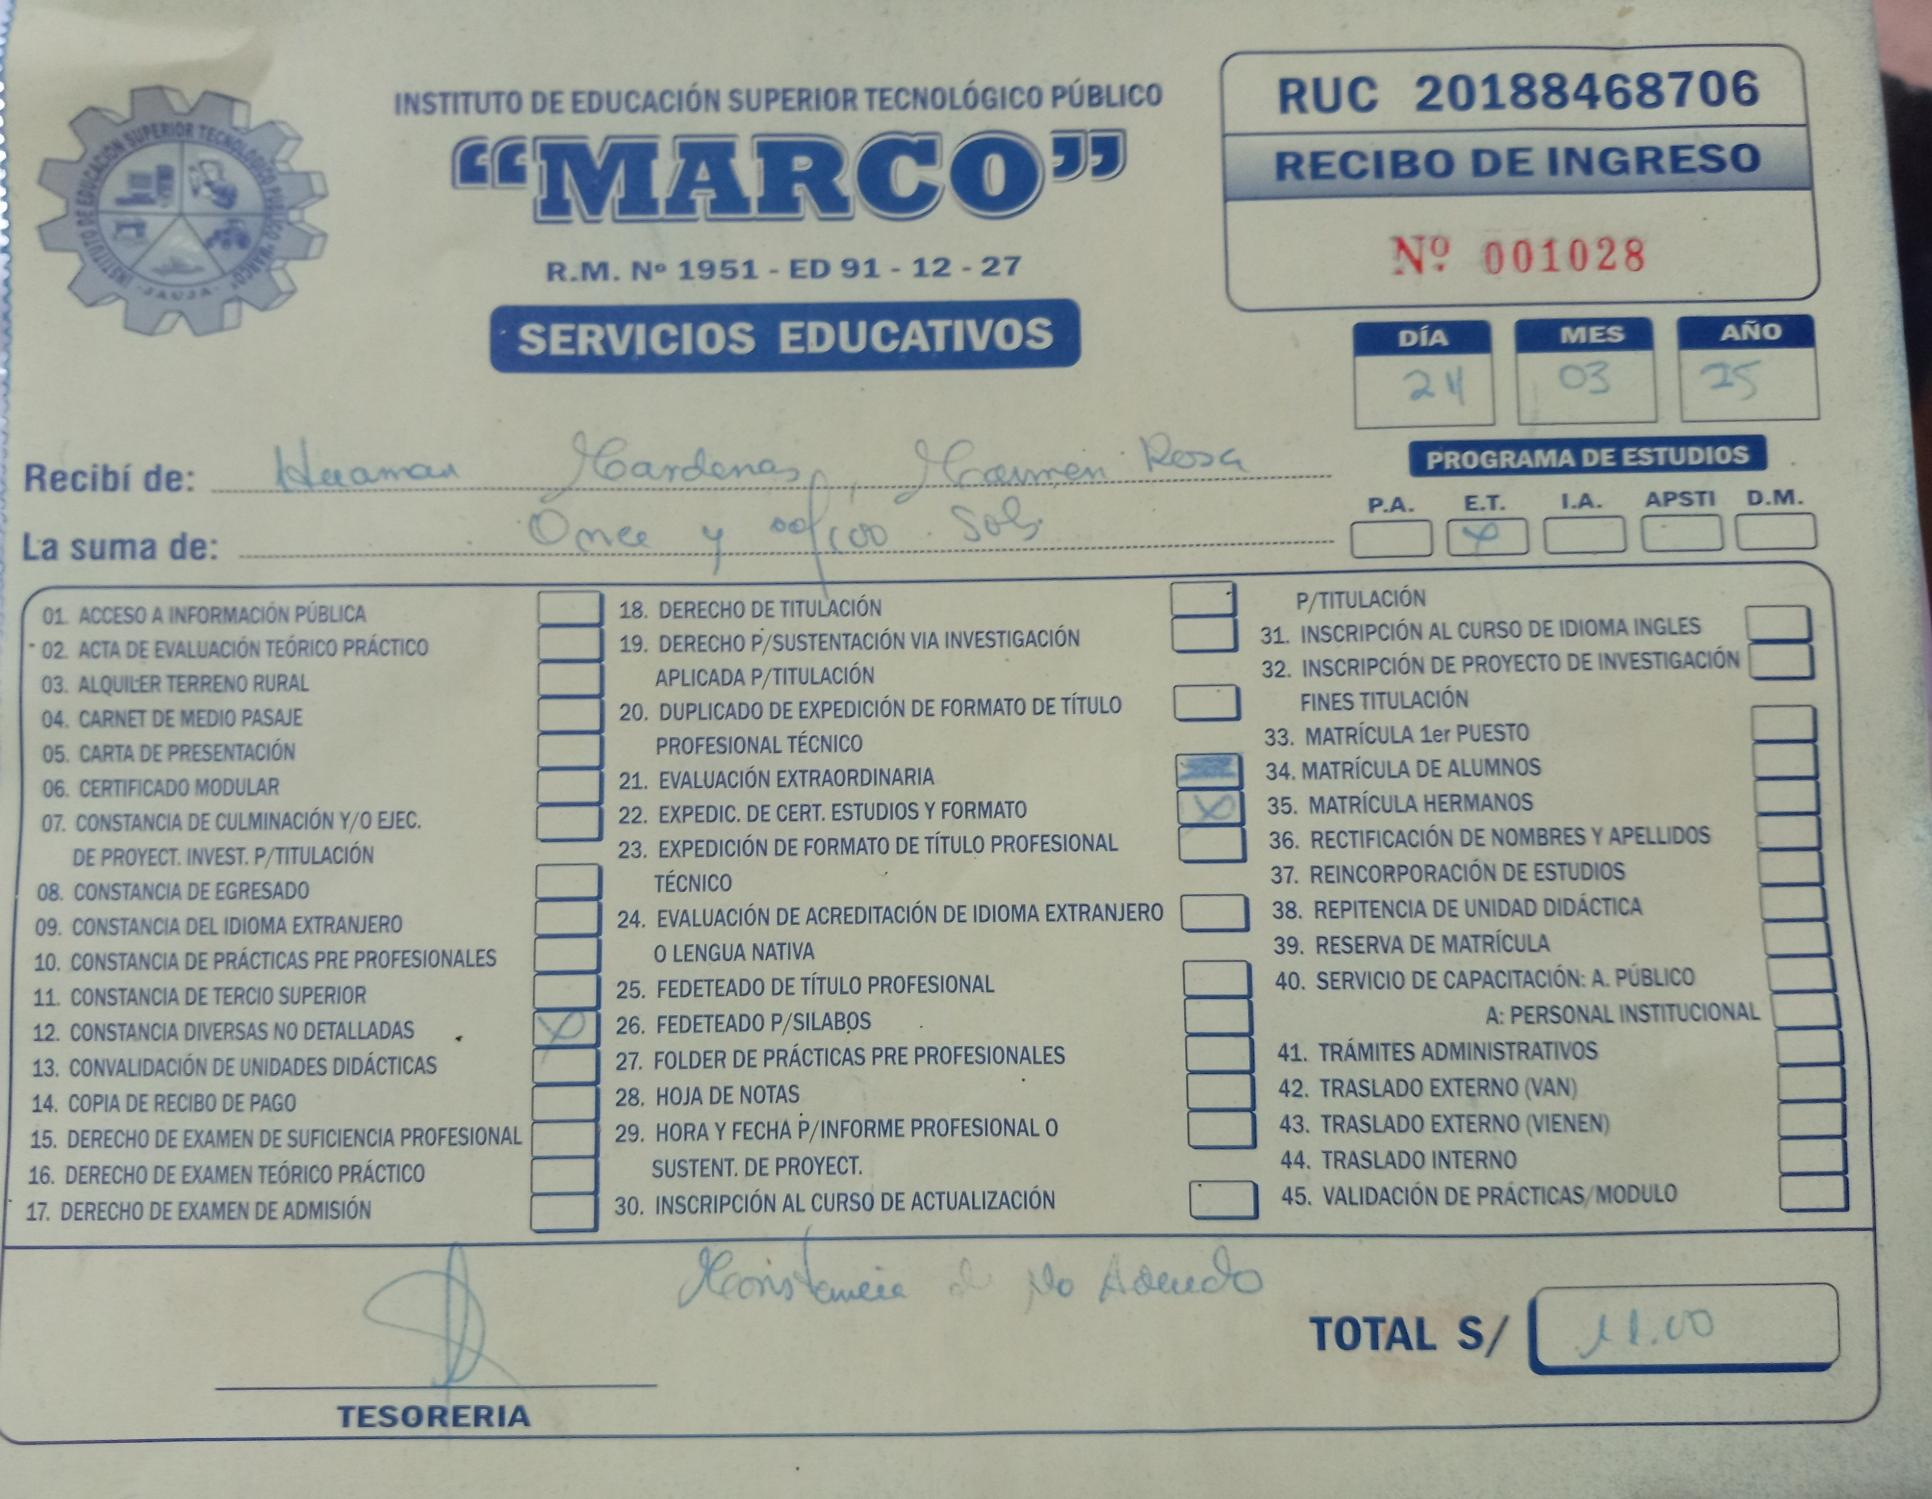 INSTITUTO DE EDUCACIÓN SUPERIOR TECNOLÓGICO PÚBLICO
"MARCO"
R.M. Nº 1951 - ED 91 - 12 - 27
SERVICIOS EDUCATIVOS
INSTITUTO DE EDUCACIÓN SUPERIOR TECNOLÓGICO PÚBLICO "MARCO"
- JAUJA -
RUC 20188468706
RECIBO DE INGRESO
Nº 001028
DÍA MES AÑO
24 03 25
Recibí de: Huaman Cardenas, Carmen Rosa
La suma de: Once y 00/100 Sols.
PROGRAMA DE ESTUDIOS
P.A. E.T. I.A. APSTI D.M.
X
01. ACCESO A INFORMACIÓN PÚBLICA
02. ACTA DE EVALUACIÓN TEÓRICO PRÁCTICO
03. ALQUILER TERRENO RURAL
04. CARNET DE MEDIO PASAJE
05. CARTA DE PRESENTACIÓN
06. CERTIFICADO MODULAR
07. CONSTANCIA DE CULMINACIÓN Y/O EJEC.
DE PROYECT. INVEST. P/TITULACIÓN
08. CONSTANCIA DE EGRESADO
09. CONSTANCIA DEL IDIOMA EXTRANJERO
10. CONSTANCIA DE PRÁCTICAS PRE PROFESIONALES
11. CONSTANCIA DE TERCIO SUPERIOR
12. CONSTANCIA DIVERSAS NO DETALLADAS X
13. CONVALIDACIÓN DE UNIDADES DIDÁCTICAS
14. COPIA DE RECIBO DE PAGO
15. DERECHO DE EXAMEN DE SUFICIENCIA PROFESIONAL
16. DERECHO DE EXAMEN TEÓRICO PRÁCTICO
17. DERECHO DE EXAMEN DE ADMISIÓN
18. DERECHO DE TITULACIÓN
19. DERECHO P/SUSTENTACIÓN VIA INVESTIGACIÓN
APLICADA P/TITULACIÓN
20. DUPLICADO DE EXPEDICIÓN DE FORMATO DE TÍTULO
PROFESIONAL TÉCNICO
21. EVALUACIÓN EXTRAORDINARIA
22. EXPEDIC. DE CERT. ESTUDIOS Y FORMATO X
23. EXPEDICIÓN DE FORMATO DE TÍTULO PROFESIONAL
TÉCNICO
24. EVALUACIÓN DE ACREDITACIÓN DE IDIOMA EXTRANJERO
O LENGUA NATIVA
25. FEDETEADO DE TÍTULO PROFESIONAL
26. FEDETEADO P/SILABOS
27. FOLDER DE PRÁCTICAS PRE PROFESIONALES
28. HOJA DE NOTAS
29. HORA Y FECHA P/INFORME PROFESIONAL O
SUSTENT. DE PROYECT.
30. INSCRIPCIÓN AL CURSO DE ACTUALIZACIÓN
P/TITULACIÓN
31. INSCRIPCIÓN AL CURSO DE IDIOMA INGLES
32. INSCRIPCIÓN DE PROYECTO DE INVESTIGACIÓN
FINES TITULACIÓN
33. MATRÍCULA 1er PUESTO
34. MATRÍCULA DE ALUMNOS
35. MATRÍCULA HERMANOS
36. RECTIFICACIÓN DE NOMBRES Y APELLIDOS
37. REINCORPORACIÓN DE ESTUDIOS
38. REPITENCIA DE UNIDAD DIDÁCTICA
39. RESERVA DE MATRÍCULA
40. SERVICIO DE CAPACITACIÓN: A. PÚBLICO
A: PERSONAL INSTITUCIONAL
41. TRÁMITES ADMINISTRATIVOS
42. TRASLADO EXTERNO (VAN)
43. TRASLADO EXTERNO (VIENEN)
44. TRASLADO INTERNO
45. VALIDACIÓN DE PRÁCTICAS/MODULO
Constancia de No Adeudo
TESORERIA
TOTAL S/ 11.00